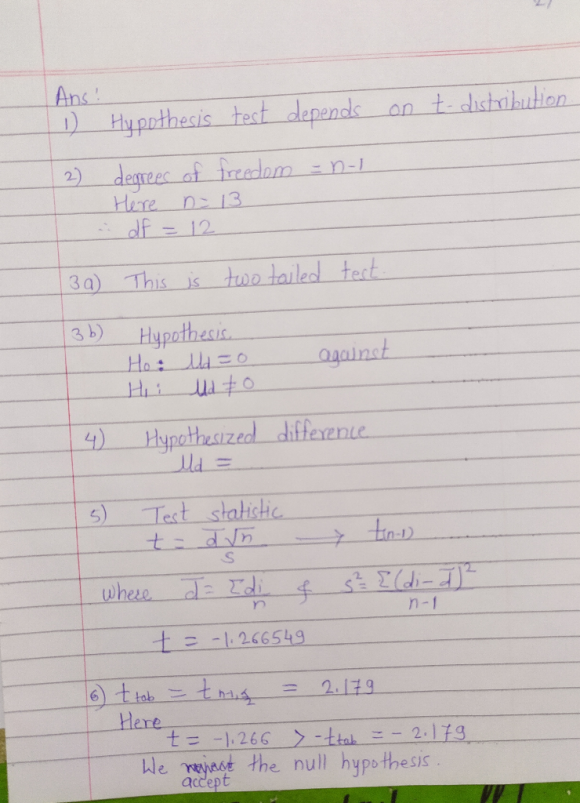 Ans:
1) Hypothesis test depends on t-distribution
2) degrees of freedom = n-1
Here n= 13
∴ df = 12
3a) This is two tailed test.
3b) Hypothesis
H₀: μd = 0 against
H₁: μd ≠ 0
4) Hypothesized difference
μd =
5) Test statistic
t = d̄√n/s ⟶ t(n-1)
where d̄ = Σdi/n & s² = Σ(di-d̄)²/n-1
t = -1.266549
6) t tab = t n-1, α/2 = 2.179
Here
t = -1.266 > -t tab = -2.179
We the null hypothesis.
accept